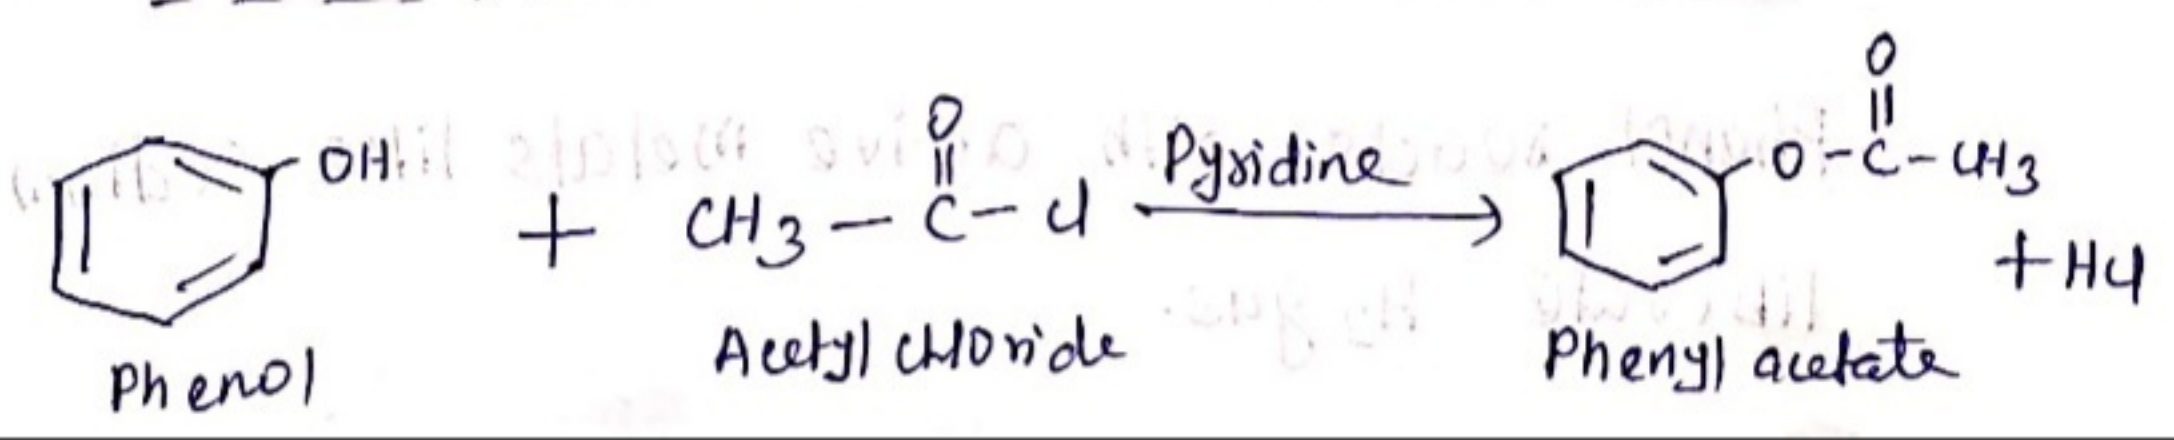 OH + CH3 – C(=O) – Cl Pyridine → O – C(=O) – CH3 + HCl
Phenol Acetyl chloride Phenyl acetate